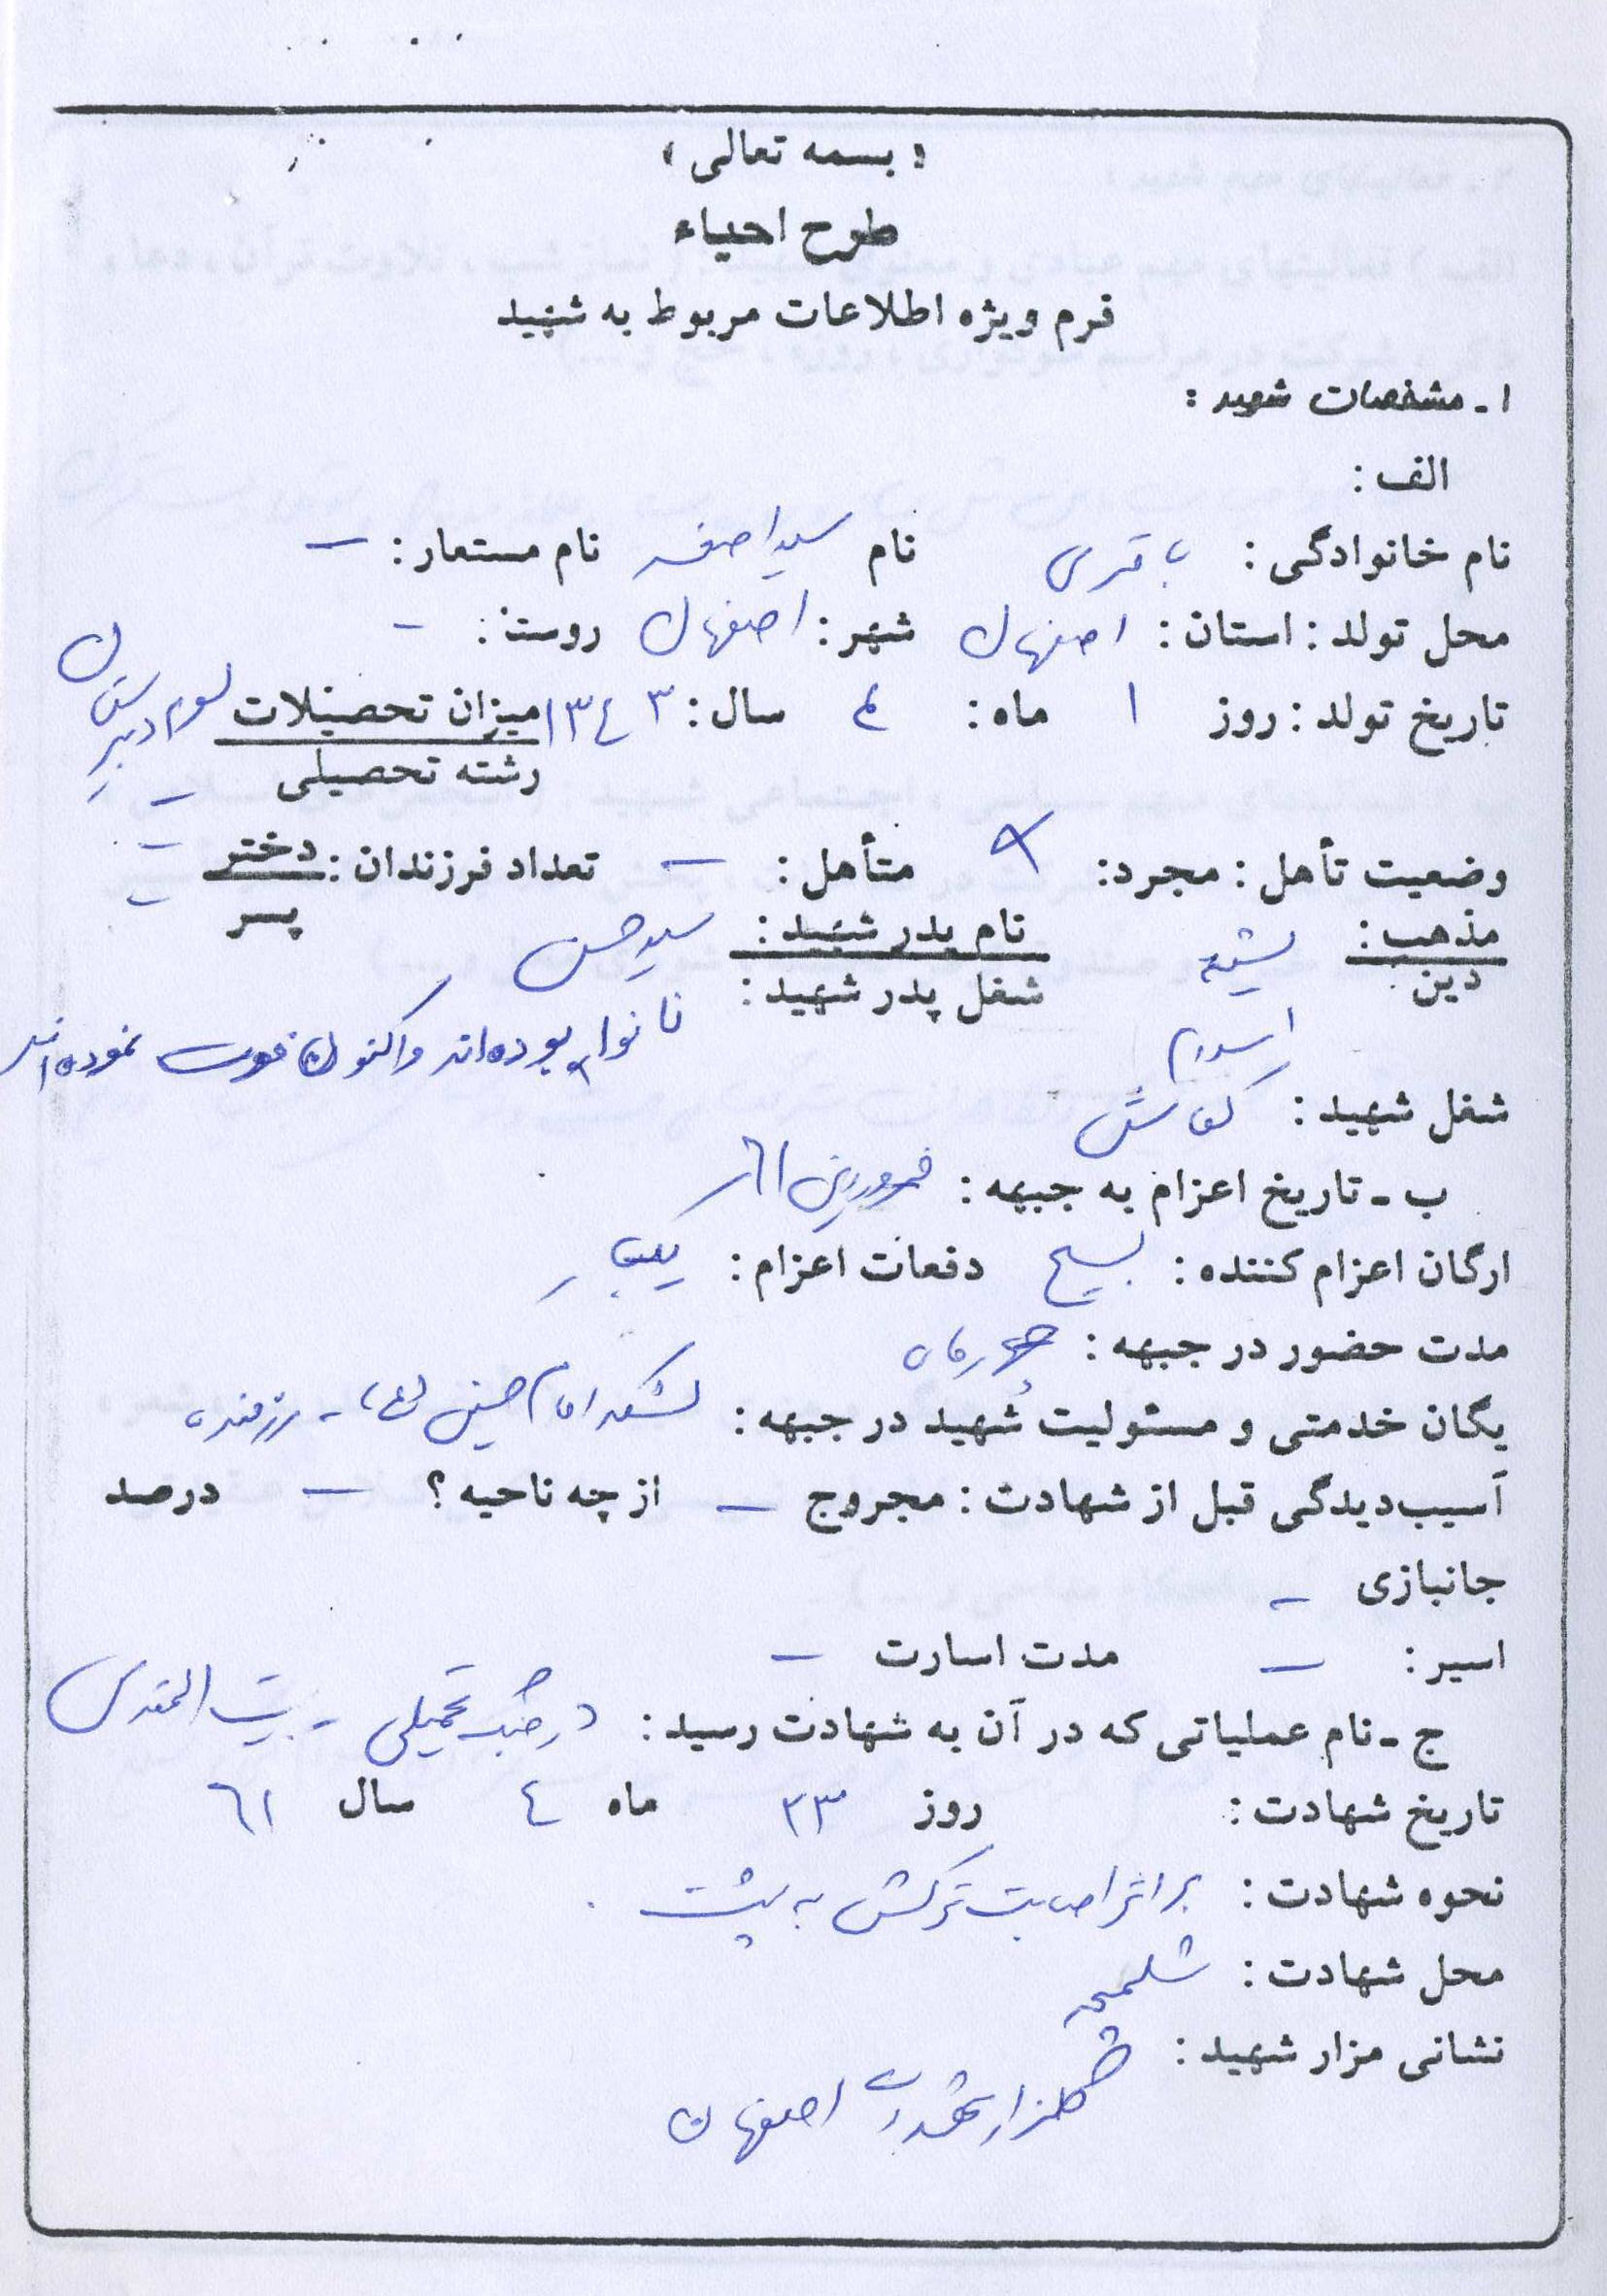 « بسمه تعالی »
طرح احیاء
فرم ویژه اطلاعات مربوط به شهید
۱ ـ مشخصات شهید :
الف :
نام خانوادگی : باقری نام سید اصغر نام مستعار : –
محل تولد : استان : اصفهان شهر : اصفهان روستا : –
تاریخ تولد : روز ۱ ماه : ٤ سال : ۱۳٤۳ میزان تحصیلات سوم دبیرستان
رشته تحصیلی –
وضعیت تأهل : مجرد : متأهل : – تعداد فرزندان : دختر –
پسر –
مذهب : شیعه نام پدر شهید : سید حسن
دین اسلام شغل پدر شهید : نانوا بوده‌اند و اکنون فوت نموده‌اند
شغل شهید : کفاش
ب ـ تاریخ اعزام به جبهه : فروردین ٦۱
ارگان اعزام کننده : بسیج دفعات اعزام : یکبار
مدت حضور در جبهه : چهارماه
یگان خدمتی و مسئولیت شهید در جبهه : لشکر امام حسین (ع) - رزمنده
آسیب‌دیدگی قبل از شهادت : مجروح – از چه ناحیه ؟ – درصد
جانبازی –
اسیر : – مدت اسارت –
ج ـ نام عملیاتی که در آن به شهادت رسید : در جنگ تحمیلی - بیت المقدس
تاریخ شهادت : روز ۲۳ ماه ٤ سال ٦۱
نحوه شهادت : بر اثر اصابت ترکش به پشت .
محل شهادت : شلمچه
نشانی مزار شهید : گلزار شهدای اصفهان